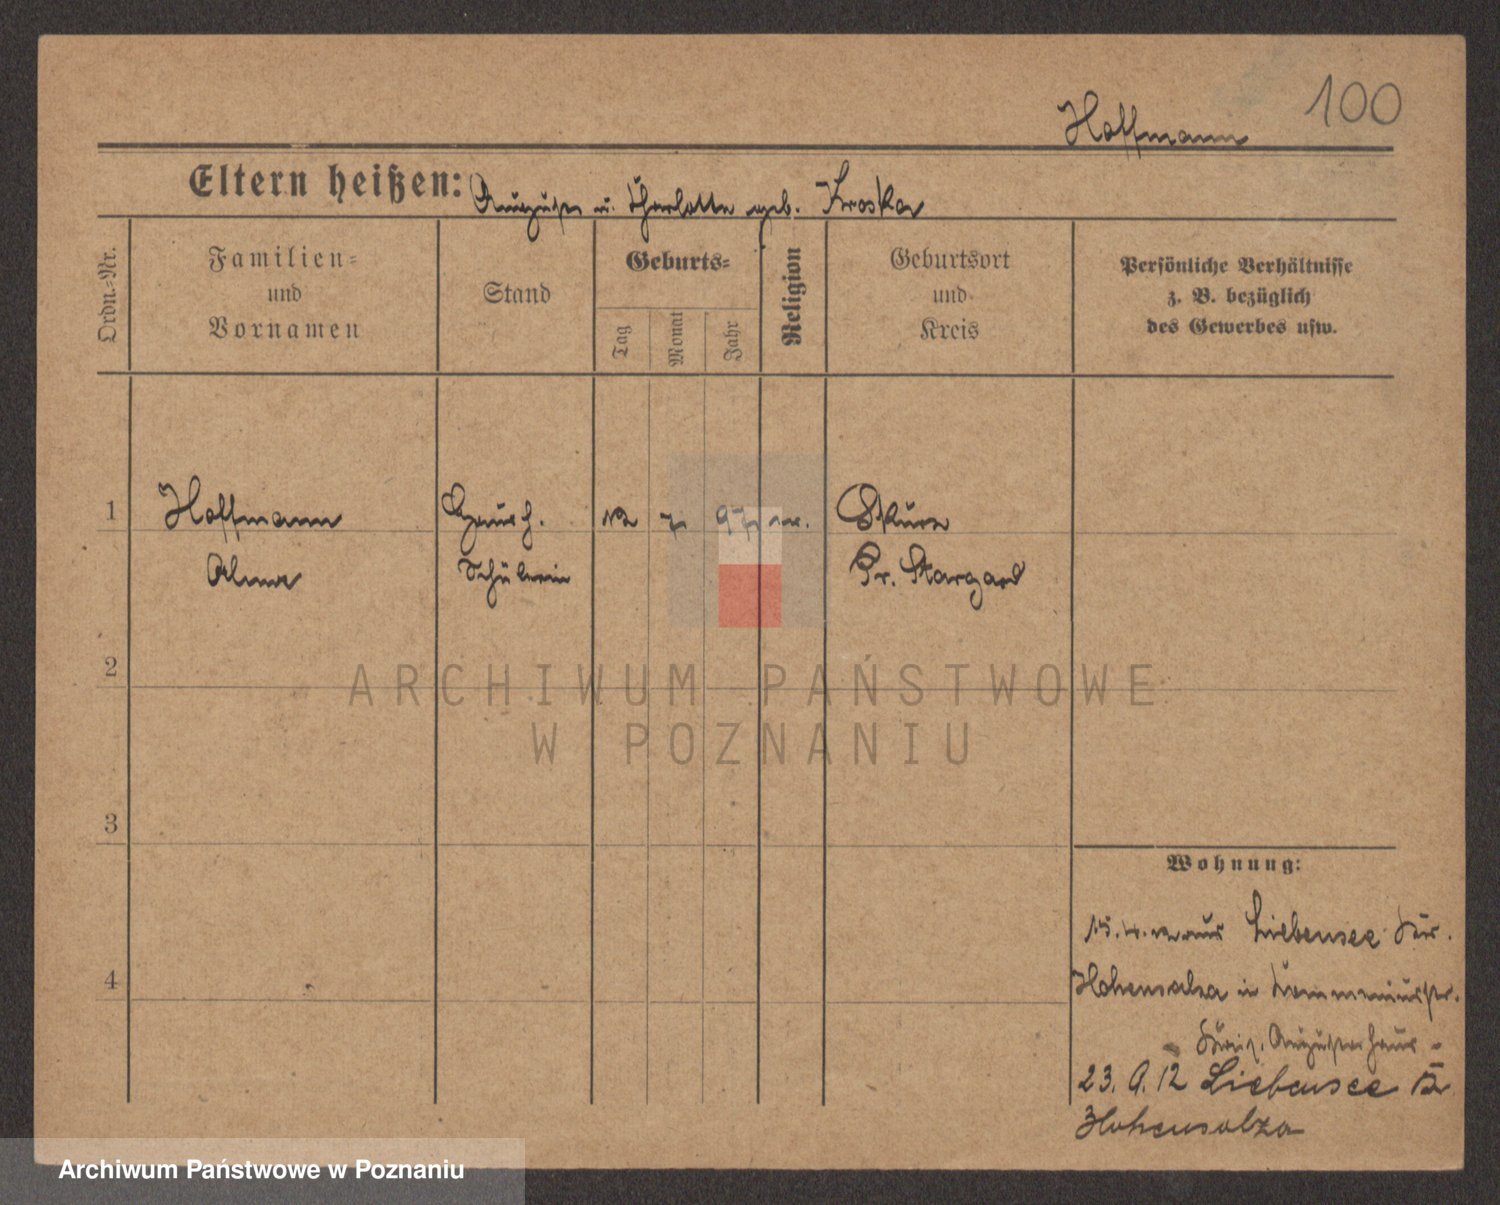 Hoffmann 100
Eltern heißen: August u. Charlotte geb. Kroska
Ordn.-Nr.
Familien- und Vornamen
Stand
Geburts-
Tag
Monat
Jahr
Religion
Geburtsort und Kreis
Persönliche Verhältnisse z. B. bezüglich des Gewerbes usw.
1 Hoffmann Haush. 12 7 97 Skurz
Schülerin Pr. Stargard
2
3
4
Wohnung:
15.4.12 aus Liebensee Kr.
Hohensalza in
23.9.12 Liebensee Kr
Hohensalza
ARCHIWUM PAŃSTWOWE
W POZNANIU
Archiwum Państwowe w Poznaniu